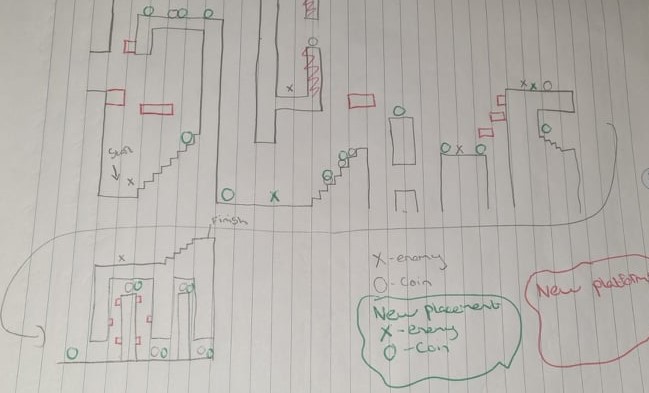 Start
Finish
X-enemy
O-coin
New placement
X-Enemy
O-Coin
New platform